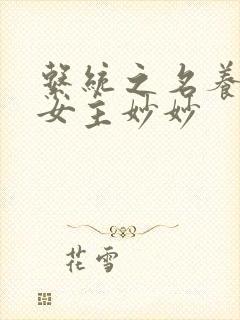 繫統之名養
女主妙妙
花雪